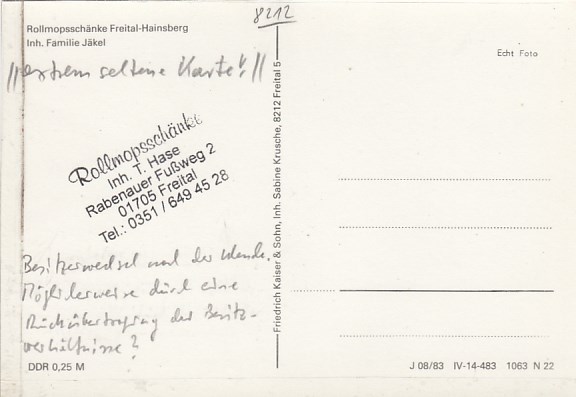 8212
Rollmopsschänke Freital-Hainsberg
Inh. Familie Jäkel
//extrem seltene Karte!//
Echt Foto
Rollmopsschänke
Inh. T. Hase
Rabenauer Fußweg 2
01705 Freital
Tel.: 0351 / 649 45 28
Friedrich Kaiser & Sohn, Inh. Sabine Krusche, 8212 Freital 5
Besitzerwechsel nach der Wende.
Möglicherweise durch eine
Rückübertragung der Besitz-
verhältnisse?
DDR 0,25 M
J 08/83 IV-14-483 1063 N 22